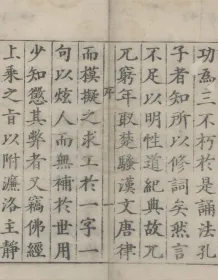 功為三不朽於是誦法孔
子者知所以修詞矣然言
不足以明性道紀典故兀
兀窮年取楚騷漢文唐律
序 一
而模擬之求工於一字一
句以炫人而無補於世用
少知懲其弊者又竊佛經
上乘之旨以附濂洛主靜